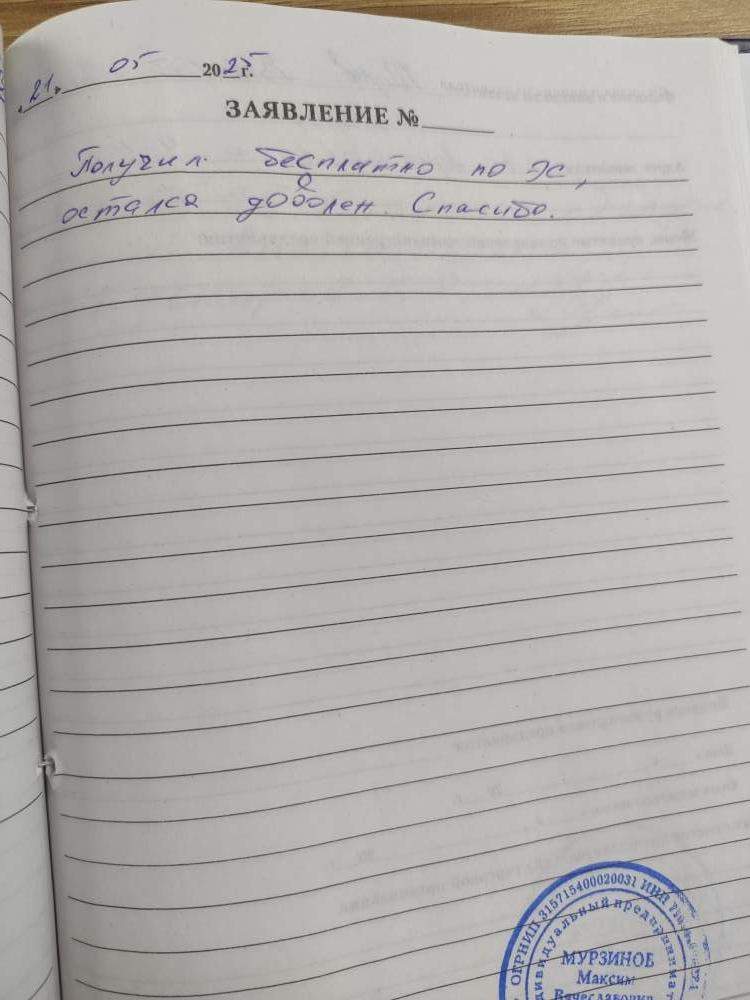 „21" 05 2025 г.
ЗАЯВЛЕНИЕ №
Получил бесплатно по ЭС,
остался доволен. Спасибо.
ОГРНИП 315715400020031 ИНН
индивидуальный предпринимат
МУРЗИНОВ
Максим
Вячеславович